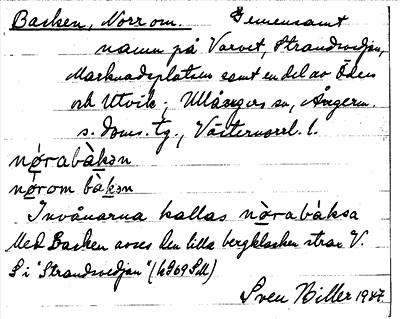 Backen, Norr om. Gemensamt
namn på Varvet, Strandvedjan,
Marknadsplatsen samt en del av Öden
och Utvik, Ullångers sn, Ångerm.
s. doms. tg., Västernorrl. l.
nọ̀rabàkən
nọ̀rom bàkən
Invånarna kallas nòrabàksa
Med Backen avses den lilla bergklacken strax V.
S i "Strandvedjan" (h969SM)
Sven Biller 1947.